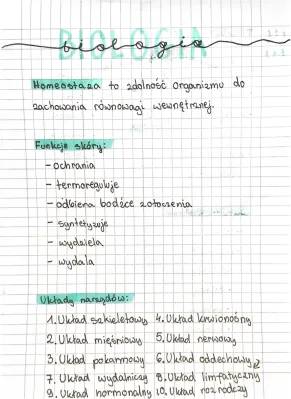 BIOLOGIA
biologia
Homeostaza to zdolność organizmu do
zachowania równowagi wewnętrznej.
Funkcje skóry:
- ochrania
- termoreguluje
- odbiera bodźce z otoczenia
- syntetyzuje
- wydziela
- wydala
Układy narządów:
1. Układ szkieletowy 4. Układ krwionośny
2. Układ mięśniowy 5. Układ nerwowy
3. Układ pokarmowy 6. Układ oddechowy
7. Układ wydalniczy 8. Układ limfatyczny
9. Układ hormonalny 10. Układ rozrodczy